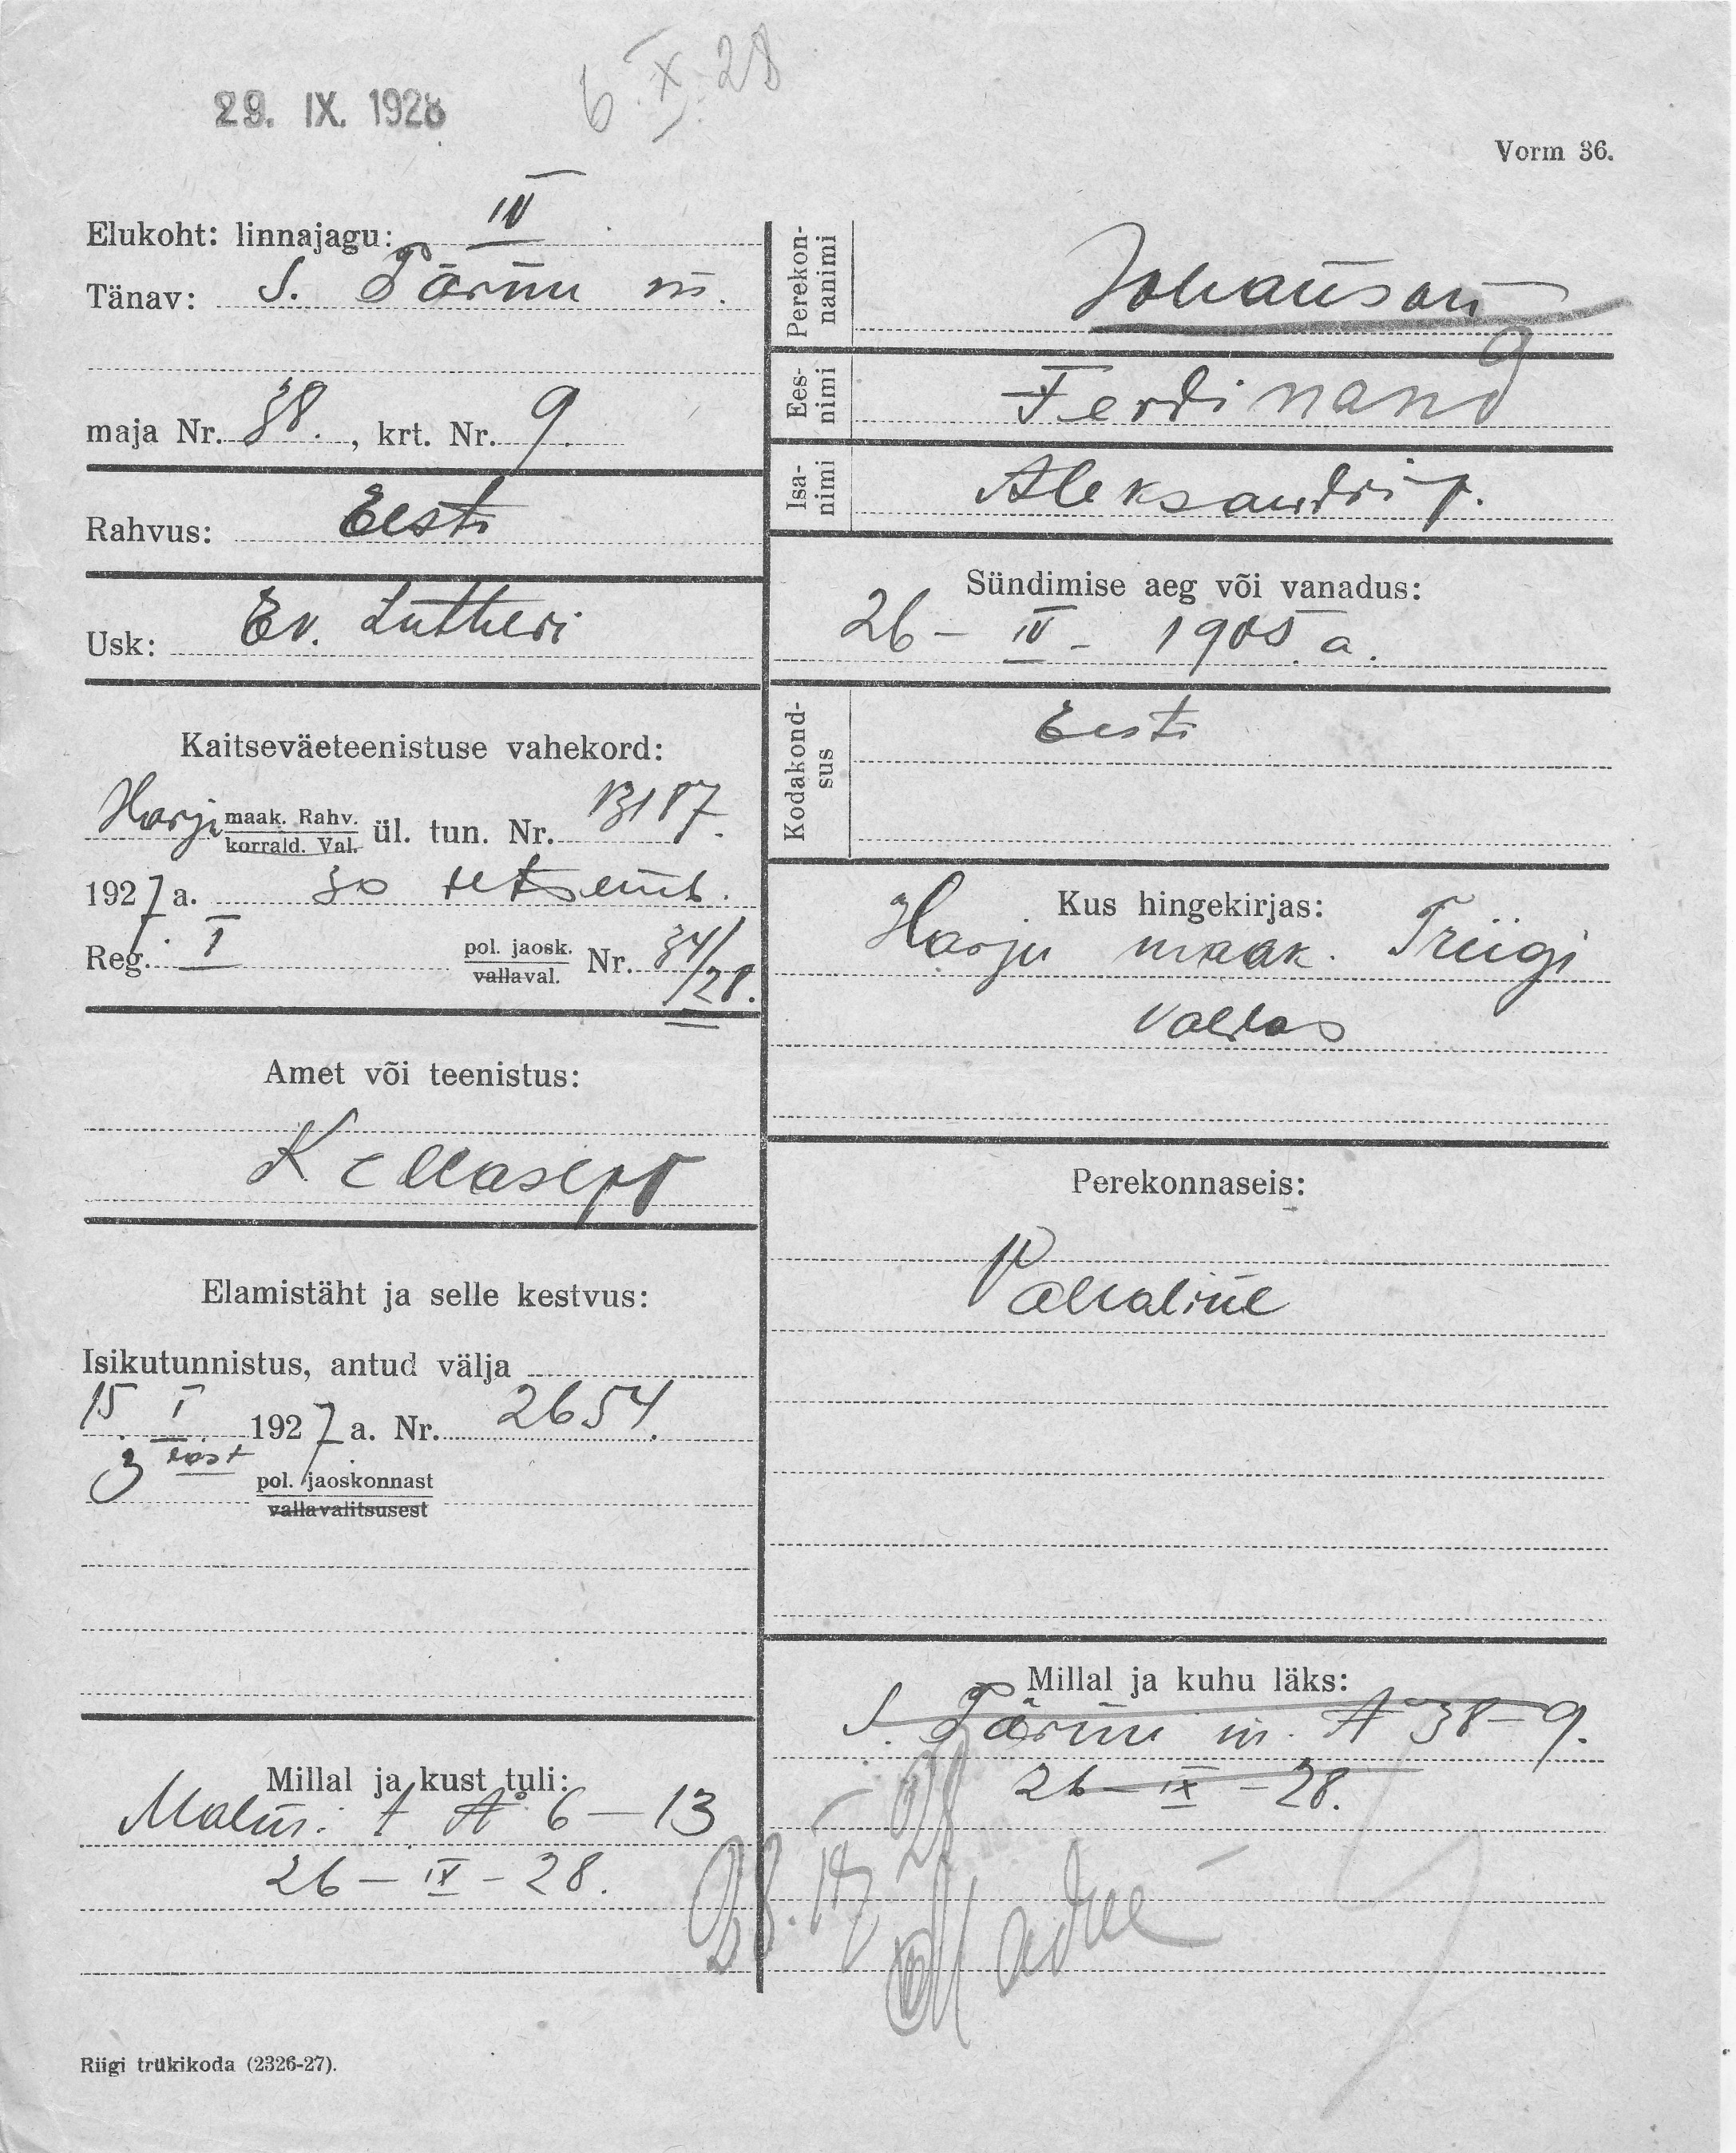 29. IX. 1928
6. X. 28
Vorm 36.
Elukoht: linnajagu: IV
Tänav: S. Pärnu m.
maja Nr. 38., krt. Nr. 9.
Rahvus: Eesti
Usk: Ev. Lutheri
Kaitseväeteenistuse vahekord:
Harju maak. Rahv. ül. tun. Nr. B187.
korrald. Val.
1927 a. 30 tetsemb.
Reg. I pol. jaosk. Nr. 34/28.
vallaval.
Amet või teenistus:
Kellasepp
Elamistäht ja selle kestvus:
Isikutunnistus, antud välja
15 I 1927 a. Nr. 2654.
3 east
pol. jaoskonnast
vallavalitsusest
Millal ja kust tuli:
6 – 13
26 – IX – 28.
Riigi trükikoda (2326-27).
Perekon-
nanimi
Johanson
Ees-
nimi
Ferdinand
Isa-
nimi
Aleksandri p.
Sündimise aeg või vanadus:
26 – IV – 1905. a.
Kodakond-
sus
Eesti
Kus hingekirjas:
Harju maak. Triigi
vallas
Perekonnaseis:
Vallaline
Millal ja kuhu läks:
S. Pärnu m. № 38–9.
26 – IX – 28.
28. IX 28